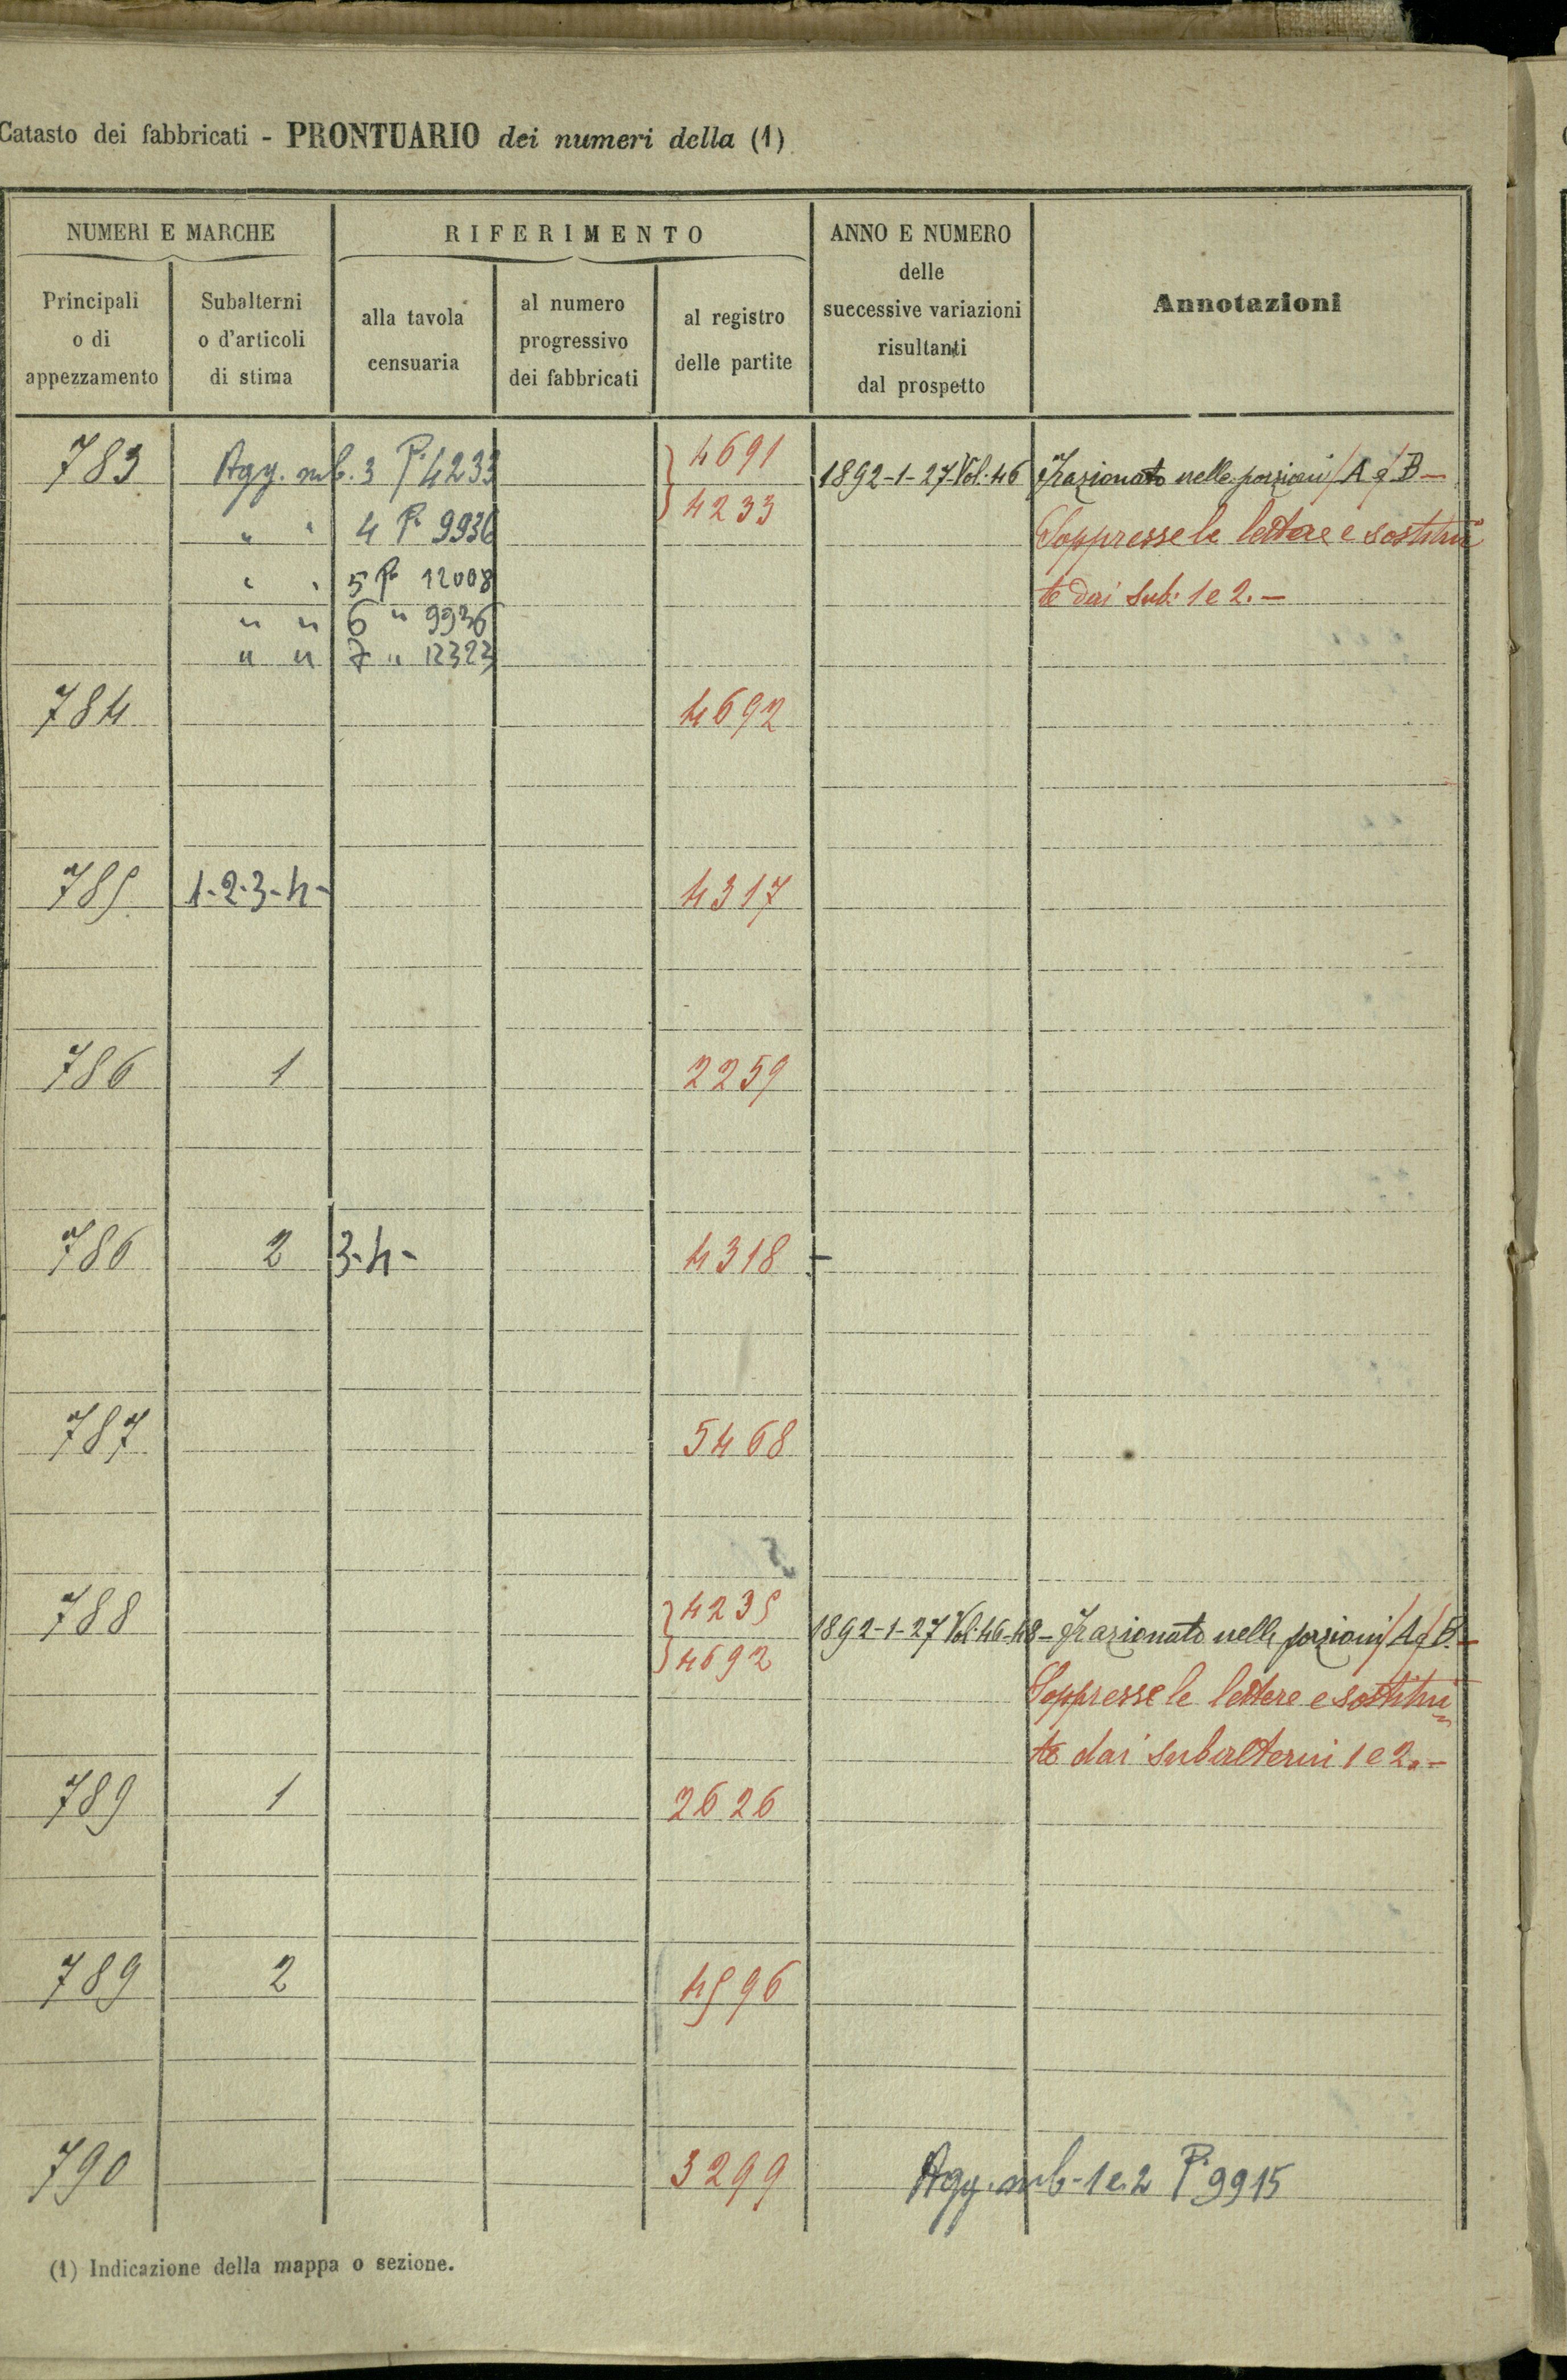 Catasto dei fabbricati - PRONTUARIO dei numeri della (1)
NUMERI E MARCHE
RIFERIMENTO
ANNO E NUMERO
delle
successive variazioni
risultanti
dal prospetto
Annotazioni
Principali
o di
appezzamento
Subalterni
o d'articoli
di stima
alla tavola
censuaria
al numero
progressivo
dei fabbricati
al registro
delle partite
783 Agg. sub. 3 P. 4233 4691 1892-1-27-Vol. 46 Frazionato nelle porzioni /A e /B -
" " 4 P. 9936 4233 Soppresse le lettere e sostitui
" " 5 P. 12008 te dai sub. 1 e 2. -
" " 6 " 9936
" " 7 " 12323
784 4692
785 1-2-3-4- 4317
786 1 2259
786 2 3-4- 4318 -
787 5468
788 4235 1892-1-27 Vol. 46-48 - Frazionato nelle porzioni /A e /B. -
4692 Soppresse le lettere e sostitui
te dai subalterni 1 e 2. -
789 1 2626
789 2 4596
790 3299 Agg. sub - 1 e 2 P. 9915
(1) Indicazione della mappa o sezione.